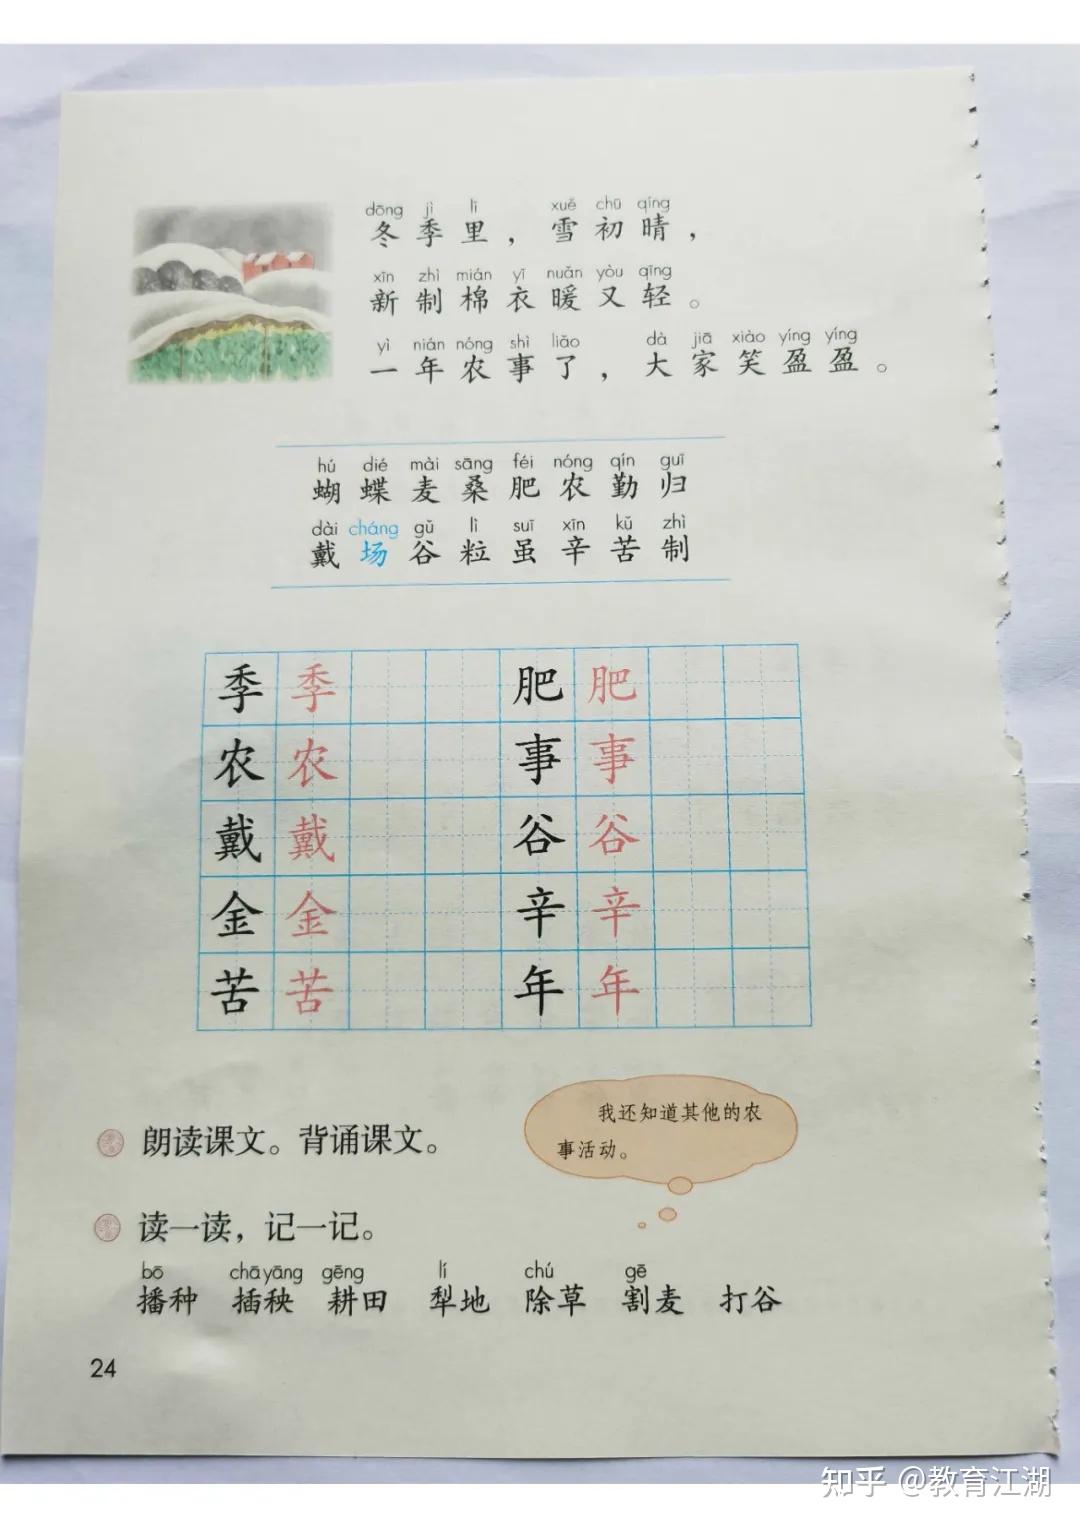 dōng jì lǐ xuě chū qíng
冬季里，雪初晴，
xīn zhì mián yī nuǎn yòu qīng
新制棉衣暖又轻。
yì nián nóng shì liǎo dà jiā xiào yíng yíng
一年农事了，大家笑盈盈。
hú dié mài sāng féi nóng qín guī
蝴蝶麦桑肥农勤归
dài cháng gǔ lì suī xīn kǔ zhì
戴场谷粒虽辛苦制
季 季 肥 肥
农 农 事 事
戴 戴 谷 谷
金 金 辛 辛
苦 苦 年 年
我还知道其他的农
事活动。
朗读课文。背诵课文。
读一读，记一记。
bō chā yāng gēng lí chú gē
播种 插秧 耕田 犁地 除草 割麦 打谷
24
知乎 @教育江湖